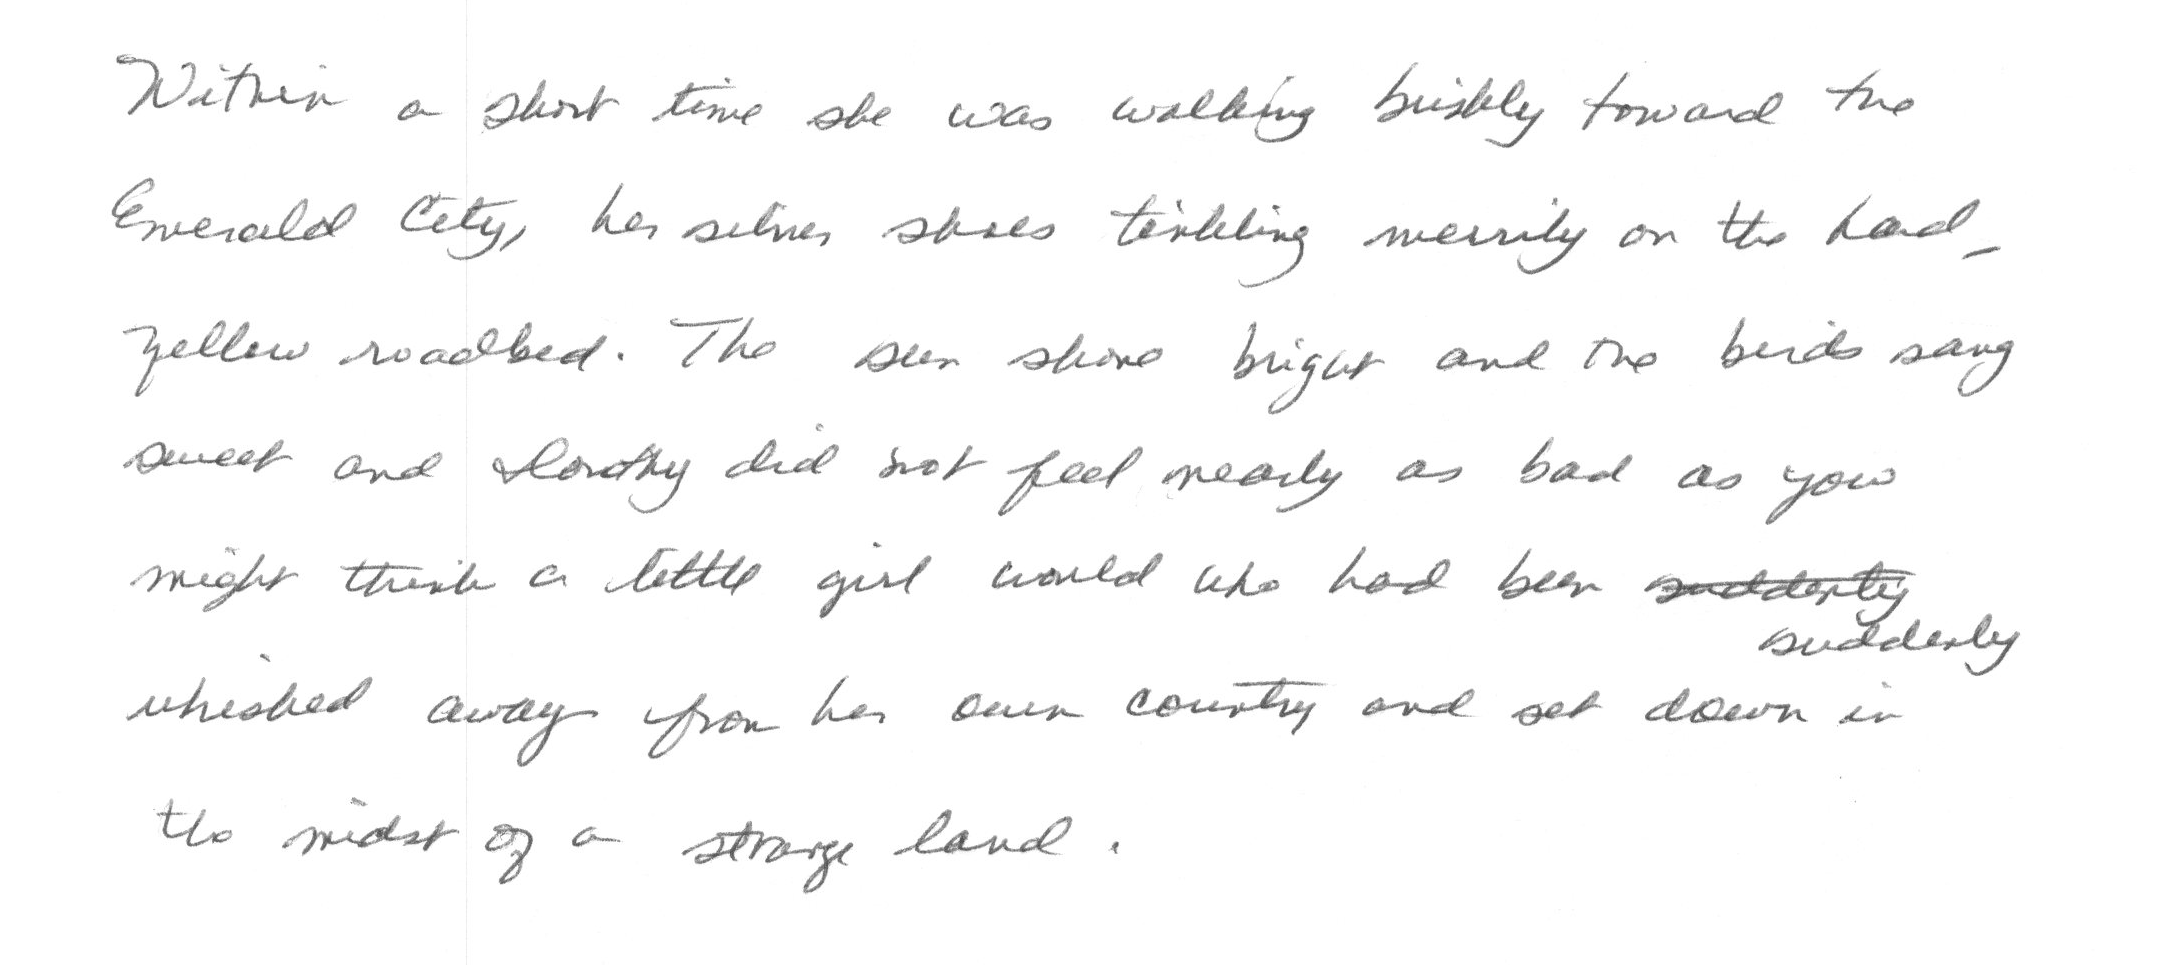 Within a short time she was walking briskly toward the
Emerald City, her silver shoes tinkling merrily on the hard,
yellow roadbed. The sun shone bright and the birds sang
sweet and Dorothy did not feel nearly as bad as you
might think a little girl would who had been suddenly
suddenly
whisked away from her own country and set down in
the midst of a strange land.